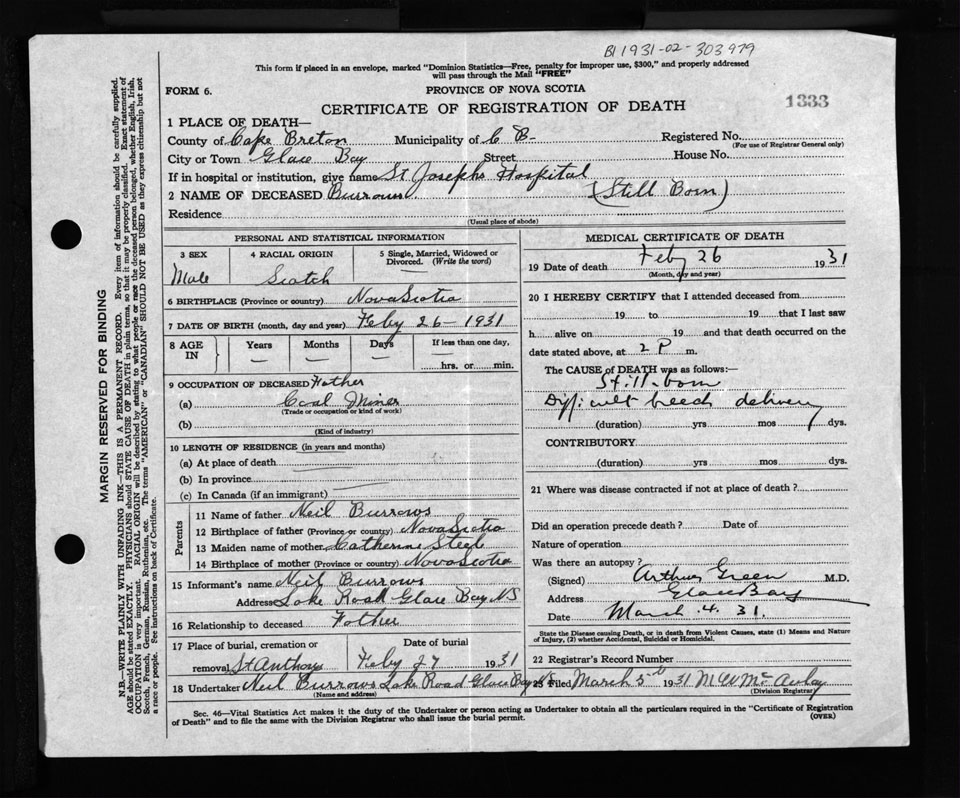 B1 1931-02-303979
This form if placed in an envelope, marked "Dominion Statistics—Free, penalty for improper use, $300," and properly addressed
will pass through the Mail "FREE"
FORM 6.
PROVINCE OF NOVA SCOTIA
CERTIFICATE OF REGISTRATION OF DEATH
1333
1 PLACE OF DEATH—
County of Cape Breton Municipality of C B- Registered No.
(For use of Registrar General only)
City or Town Glace Bay Street House No.
If in hospital or institution, give name St Josephs Hospital
2 NAME OF DECEASED Burrows (Still Born)
Residence
(Usual place of abode)
PERSONAL AND STATISTICAL INFORMATION
3 SEX 4 RACIAL ORIGIN 5 Single, Married, Widowed or Divorced. (Write the word)
Male Scotch
6 BIRTHPLACE (Province or country) Nova Scotia
7 DATE OF BIRTH (month, day and year) Feby 26-1931
8 AGE IN Years Months Days If less than one day,
— — — —
hrs. or min.
9 OCCUPATION OF DECEASED Father
(a) Coal Miner
(Trade or occupation or kind of work)
(b)
(Kind of industry)
10 LENGTH OF RESIDENCE (in years and months)
(a) At place of death
(b) In province
(c) In Canada (if an immigrant)
Parents
11 Name of father Neil Burrows
12 Birthplace of father (Province or country) Nova Scotia
13 Maiden name of mother Catherine Steel
14 Birthplace of mother (Province or country) Nova Scotia
15 Informant's name Neil Burrows
Address Lake Road Glace Bay NS
16 Relationship to deceased Father
17 Place of burial, cremation or removal St Anthony Date of burial Feby 27 1931
18 Undertaker Neil Burrows Lake Road Glace Bay NS
(Name and address)
MEDICAL CERTIFICATE OF DEATH
19 Date of death Feby 26 1931
(Month, day and year)
20 I HEREBY CERTIFY that I attended deceased from
19 to 19 that I last saw
h alive on 19 and that death occurred on the
date stated above, at 2 P m.
The CAUSE of DEATH was as follows:—
Still-born
Difficult breech delivery
(duration) yrs mos dys.
CONTRIBUTORY
(duration) yrs mos dys.
21 Where was disease contracted if not at place of death?
Did an operation precede death? Date of
Nature of operation
Was there an autopsy?
(Signed) Arthur Green M.D.
Address Glace Bay
Date March 4. 31.
State the Disease causing Death, or in death from Violent Causes, state (1) Means and Nature
of Injury, (2) whether Accidental, Suicidal or Homicidal.
22 Registrar's Record Number
23 Filed March 5th 1931 M W McAulay
(Division Registrar)
Sec. 46—Vital Statistics Act makes it the duty of the Undertaker or person acting as Undertaker to obtain all the particulars required in the "Certificate of Registration
of Death" and to file the same with the Division Registrar who shall issue the burial permit.
(OVER)
MARGIN RESERVED FOR BINDING
N.B.—WRITE PLAINLY WITH UNFADING INK—THIS IS A PERMANENT RECORD. Every item of information should be carefully supplied.
AGE should be stated EXACTLY. PHYSICIANS should STATE CAUSE OF DEATH in plain terms, so that it may be properly classified. Exact statement of
OCCUPATION is very important. RACIAL ORIGIN will be described by stating to what people or race the deceased person belonged, whether English, Irish,
Scotch, French, German, Russian, Ruthenian, etc. The terms "AMERICAN" or "CANADIAN" SHOULD NOT BE USED as they express citizenship but not
a race or people. See instructions on back of Certificate.